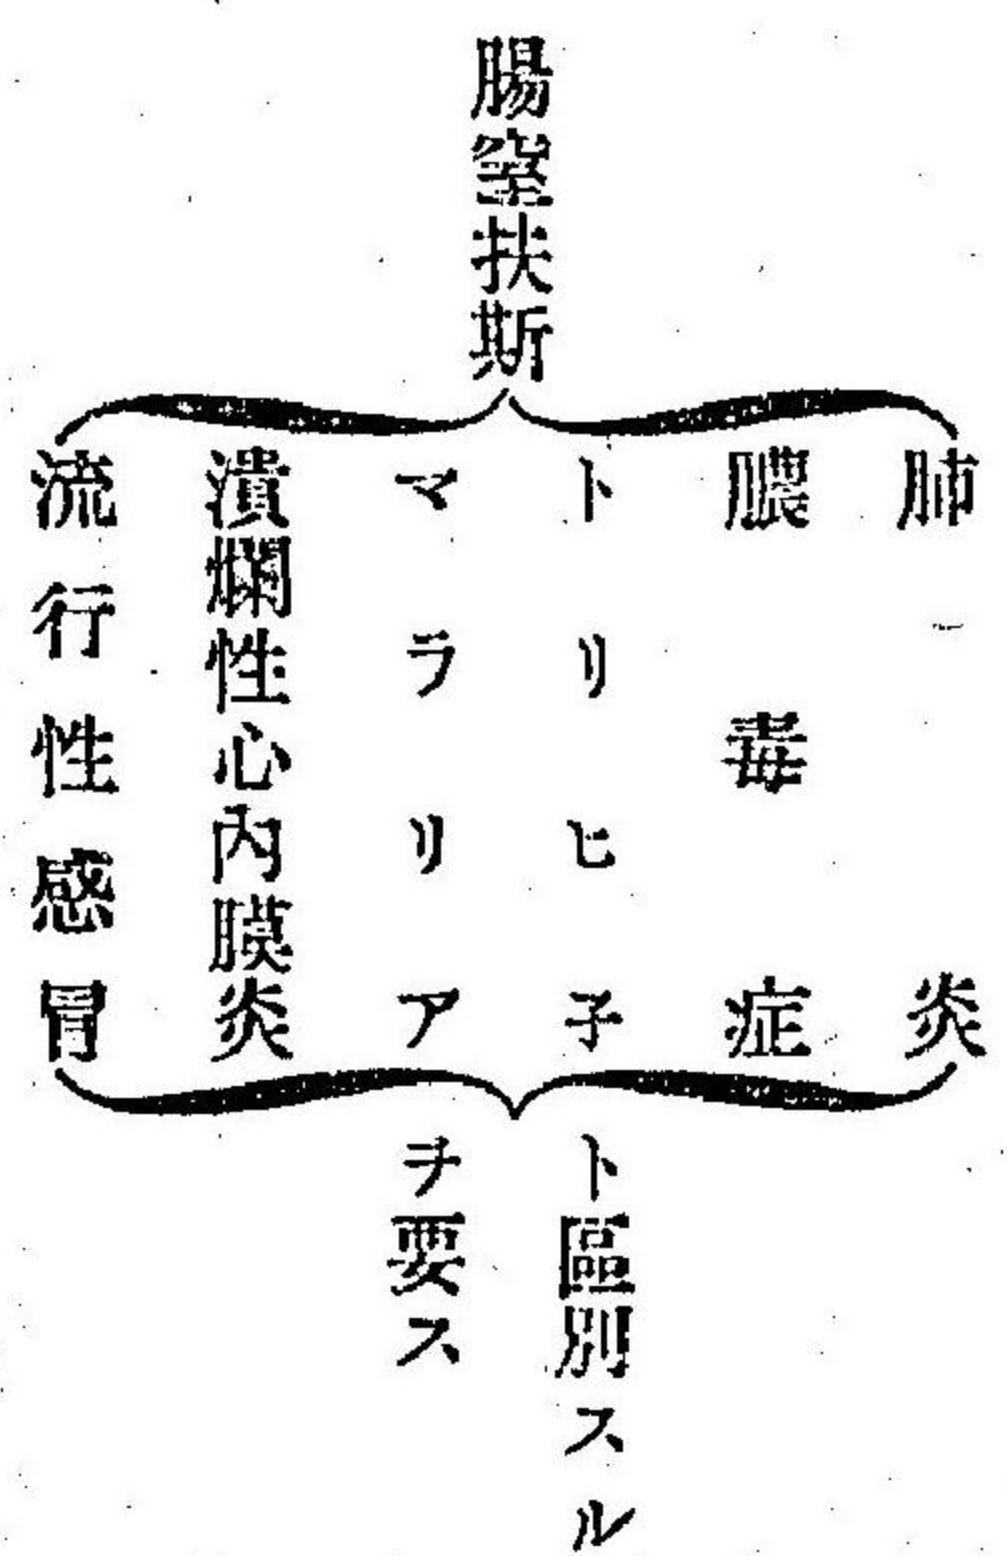 腸窒扶斯
肺炎
膿毒症
トリヒ子
マラリア
潰爛性心內膜炎
流行性感冒
ト區別スル
ヲ要ス